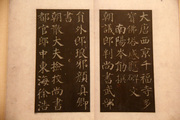 大唐西京千福寺多
寶佛塔感應碑文
南陽岑勛撰
朝議郎判尚書武部
員外郎琅邪顏真卿
書
朝散大夫撿挍尚書
都官郎中東海徐浩